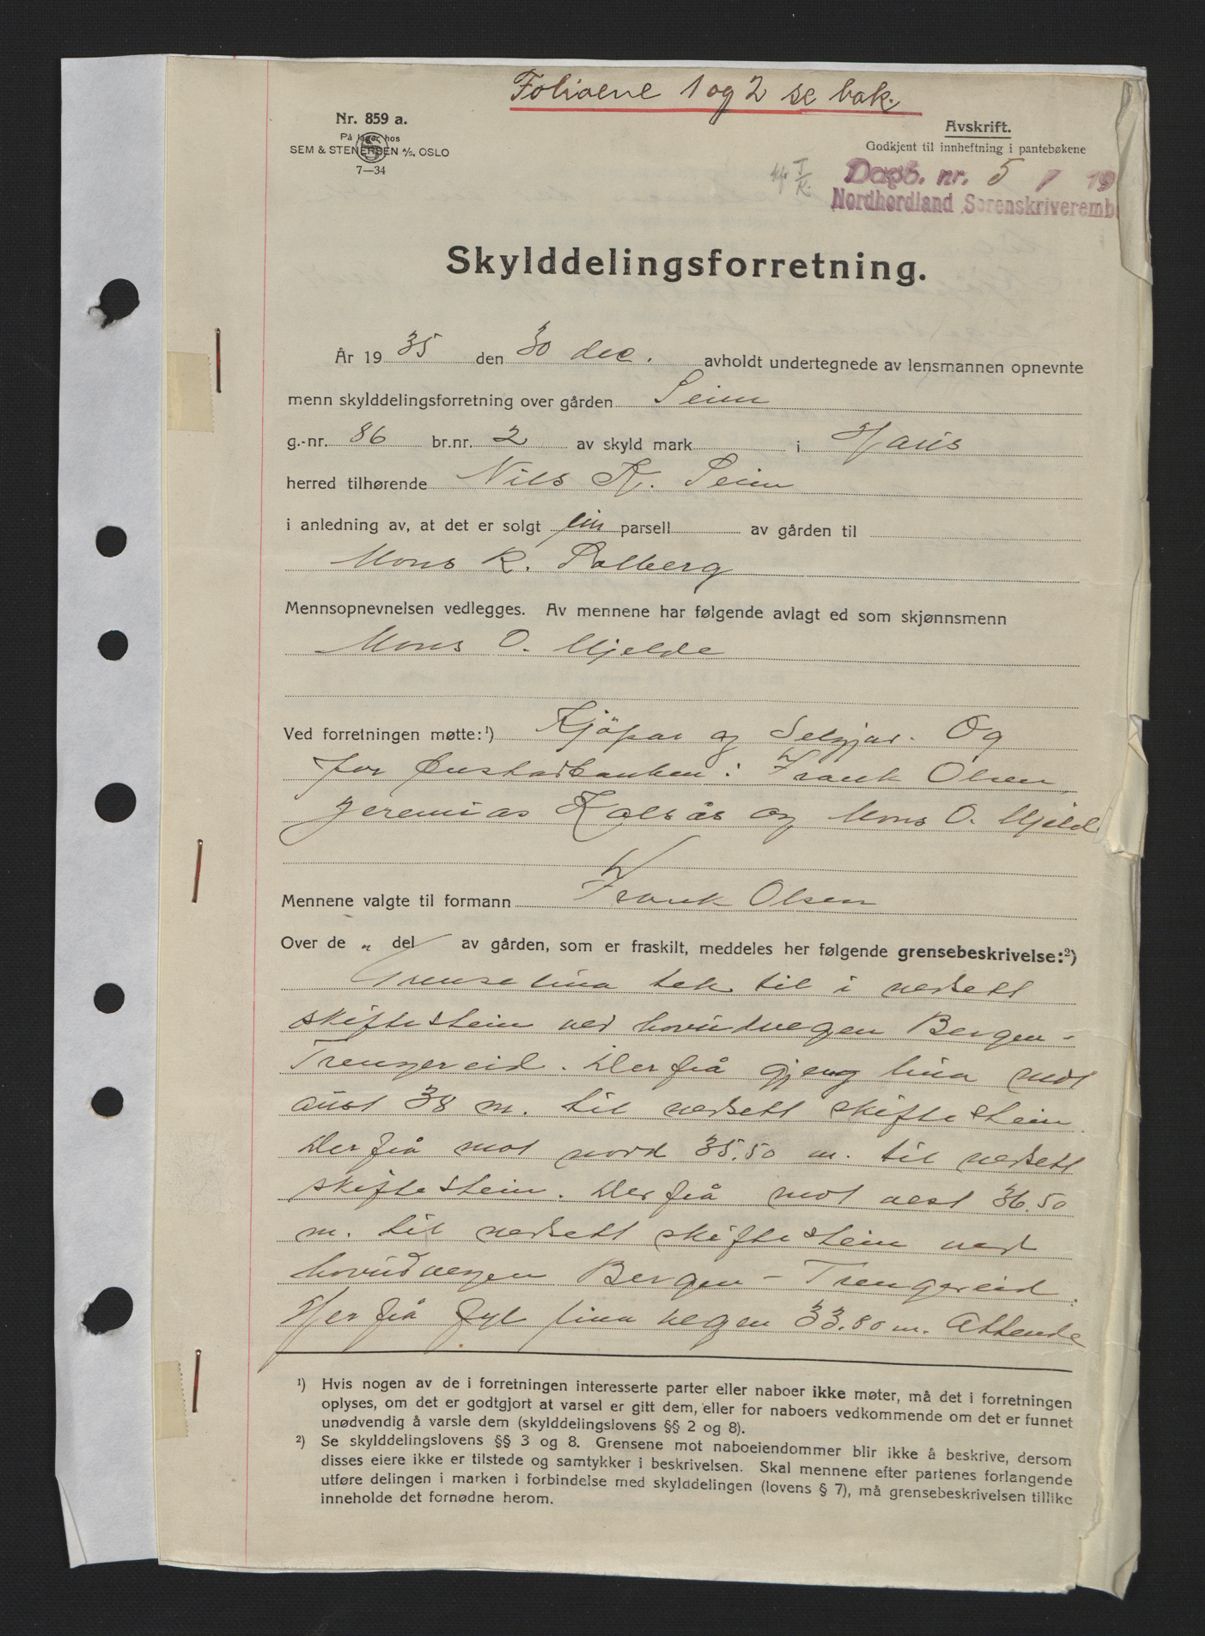 Folioene 1 og 2 se bak.
Nr. 859 a.
På lager hos
SEM & STENERSEN A/S, OSLO
7—34
Avskrift.
Godkjent til innheftning i pantebøkene
Dagb. nr. 5 / 19
Nordhordland Sorenskriveremb
Skylddelingsforretning.
År 1935 den 30 dec. avholdt undertegnede av lensmannen opnevnte
menn skylddelingsforretning over gården Seim
g.-nr. 86 br.nr. 2 av skyld mark i Haus
herred tilhørende Nils K. Seim
i anledning av, at det er solgt ein parsell av gården til
Mons K. Solberg
Mennsopnevnelsen vedlegges. Av mennene har følgende avlagt ed som skjønnsmenn
Mons O. Mjelde
Ved forretningen møtte:¹) Kjöpar og Seljar. Og
for : Frank Olsen,
Jeremias Kalsås og Mons O. Mjeld
Mennene valgte til formann Frank Olsen
Over de „ del av gården, som er fraskilt, meddeles her følgende grensebeskrivelse:²)
Grenselina tek til i nedsett
skiftestein ved hovudvegen Bergen-
Trengereid. Derfrå gjeng lina mot
aust 38 m. til nedsett skiftestein.
Derfrå mot nord 35.50 m. til nedsett
skiftestein. Derfrå mot vest 36.50
m. til nedsett skiftestein ved
hovudvegen Bergen - Trengereid.
Herfrå fyl lina vegen 33.80 m. Attende
¹) Hvis nogen av de i forretningen interesserte parter eller naboer ikke møter, må det i forretningen
oplyses, om det er godtgjort at varsel er gitt dem, eller for naboers vedkommende om det er funnet
unødvendig å varsle dem (skylddelingslovens §§ 2 og 8).
²) Se skylddelingslovens §§ 3 og 8. Grensene mot naboeiendommer blir ikke å beskrive, dersom
disses eiere ikke er tilstede og samtykker i beskrivelsen. Skal mennene efter partenes forlangende
utføre delingen i marken i forbindelse med skylddelingen (lovens § 7), må grensebeskrivelsen tillike
inneholde det fornødne herom.